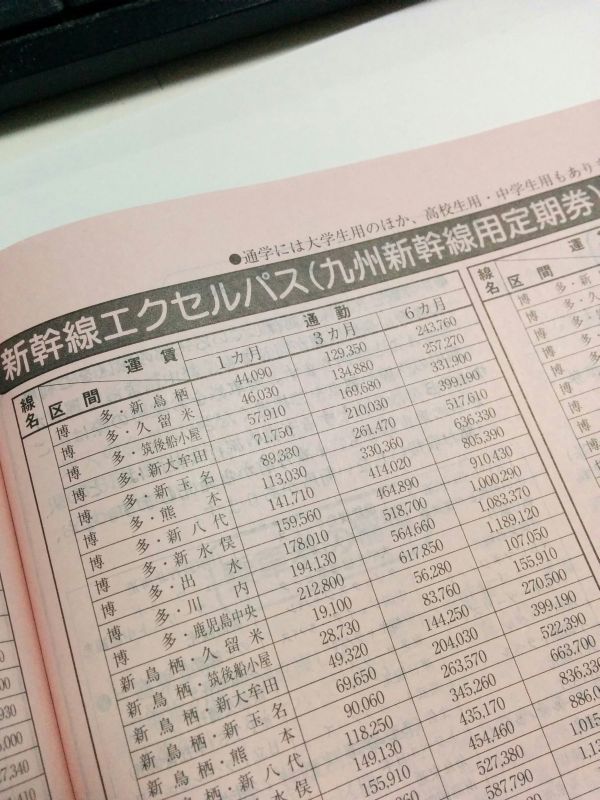 ●通学には大学生用のほか、高校生用・中学生用もあり
新幹線エクセルパス(九州新幹線用定期券)
線名 区間 運賃 通勤
1カ月 3カ月 6カ月
博多・新鳥栖 44,090 129,350 243,760
博多・久留米 46,030 134,880 257,270
博多・筑後船小屋 57,910 169,680 331,900
博多・新大牟田 71,750 210,030 399,190
博多・新玉名 89,330 261,470 517,610
博多・熊本 113,030 330,360 636,330
博多・新八代 141,710 414,020 805,390
博多・新水俣 159,560 464,890 910,430
博多・出水 178,010 518,700 1,000,290
博多・川内 194,130 564,660 1,083,370
博多・鹿児島中央 212,800 617,850 1,189,120
新鳥栖・久留米 19,100 56,280 107,050
新鳥栖・筑後船小屋 28,730 83,760 155,910
新鳥栖・新大牟田 49,320 144,250 270,500
新鳥栖・新玉名 69,650 204,030 399,190
新鳥栖・熊本 90,060 263,570 522,390
新鳥栖・新八代 118,250 345,260 663,700
149,130 435,170 836,330
155,910 454,460 886,0
527,380 1,015
587,790 1,1
線名 区間 運
博多・新
博多・久
博
博
博
博